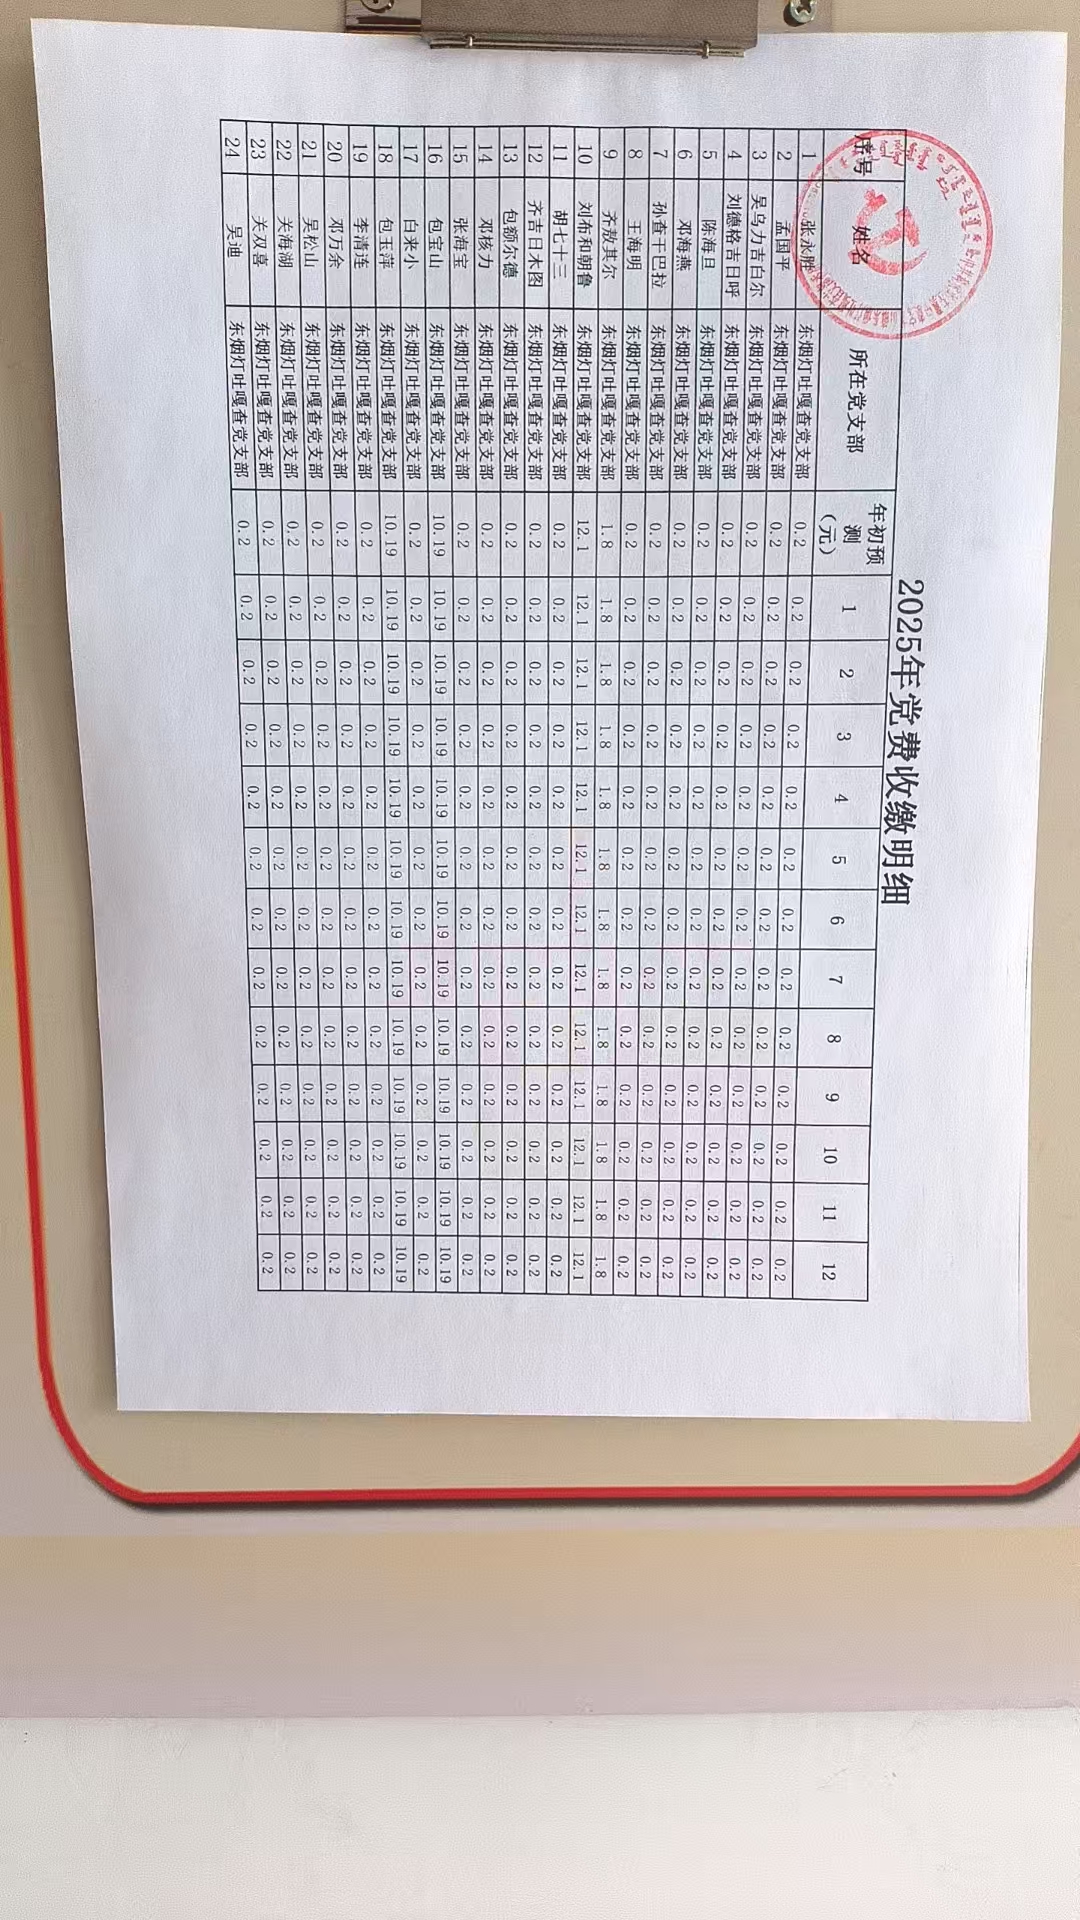 2025年党费收缴明细
序号 姓名 所在党支部 年初预测（元） 1 2 3 4 5 6 7 8 9 10 11 12
1 张永胜 东烟灯吐嘎查党支部 0.2 0.2 0.2 0.2 0.2 0.2 0.2 0.2 0.2 0.2 0.2 0.2 0.2
2 孟国平 东烟灯吐嘎查党支部 0.2 0.2 0.2 0.2 0.2 0.2 0.2 0.2 0.2 0.2 0.2 0.2 0.2
3 吴乌力吉白尔 东烟灯吐嘎查党支部 0.2 0.2 0.2 0.2 0.2 0.2 0.2 0.2 0.2 0.2 0.2 0.2 0.2
4 刘德格吉日呼 东烟灯吐嘎查党支部 0.2 0.2 0.2 0.2 0.2 0.2 0.2 0.2 0.2 0.2 0.2 0.2 0.2
5 陈海旦 东烟灯吐嘎查党支部 0.2 0.2 0.2 0.2 0.2 0.2 0.2 0.2 0.2 0.2 0.2 0.2 0.2
6 邓海燕 东烟灯吐嘎查党支部 0.2 0.2 0.2 0.2 0.2 0.2 0.2 0.2 0.2 0.2 0.2 0.2 0.2
7 孙查干巴拉 东烟灯吐嘎查党支部 0.2 0.2 0.2 0.2 0.2 0.2 0.2 0.2 0.2 0.2 0.2 0.2 0.2
8 王海明 东烟灯吐嘎查党支部 0.2 0.2 0.2 0.2 0.2 0.2 0.2 0.2 0.2 0.2 0.2 0.2 0.2
9 齐敖其尔 东烟灯吐嘎查党支部 1.8 1.8 1.8 1.8 1.8 1.8 1.8 1.8 1.8 1.8 1.8 1.8 1.8
10 刘布和朝鲁 东烟灯吐嘎查党支部 12.1 12.1 12.1 12.1 12.1 12.1 12.1 12.1 12.1 12.1 12.1 12.1 12.1
11 胡七十三 东烟灯吐嘎查党支部 0.2 0.2 0.2 0.2 0.2 0.2 0.2 0.2 0.2 0.2 0.2 0.2 0.2
12 齐吉日木图 东烟灯吐嘎查党支部 0.2 0.2 0.2 0.2 0.2 0.2 0.2 0.2 0.2 0.2 0.2 0.2 0.2
13 包额尔德 东烟灯吐嘎查党支部 0.2 0.2 0.2 0.2 0.2 0.2 0.2 0.2 0.2 0.2 0.2 0.2 0.2
14 邓核力 东烟灯吐嘎查党支部 0.2 0.2 0.2 0.2 0.2 0.2 0.2 0.2 0.2 0.2 0.2 0.2 0.2
15 张海宝 东烟灯吐嘎查党支部 0.2 0.2 0.2 0.2 0.2 0.2 0.2 0.2 0.2 0.2 0.2 0.2 0.2
16 包宝山 东烟灯吐嘎查党支部 10.19 10.19 10.19 10.19 10.19 10.19 10.19 10.19 10.19 10.19 10.19 10.19 10.19
17 白米小 东烟灯吐嘎查党支部 0.2 0.2 0.2 0.2 0.2 0.2 0.2 0.2 0.2 0.2 0.2 0.2 0.2
18 包玉萍 东烟灯吐嘎查党支部 10.19 10.19 10.19 10.19 10.19 10.19 10.19 10.19 10.19 10.19 10.19 10.19 10.19
19 李清连 东烟灯吐嘎查党支部 0.2 0.2 0.2 0.2 0.2 0.2 0.2 0.2 0.2 0.2 0.2 0.2 0.2
20 邓万余 东烟灯吐嘎查党支部 0.2 0.2 0.2 0.2 0.2 0.2 0.2 0.2 0.2 0.2 0.2 0.2 0.2
21 吴松山 东烟灯吐嘎查党支部 0.2 0.2 0.2 0.2 0.2 0.2 0.2 0.2 0.2 0.2 0.2 0.2 0.2
22 关海湖 东烟灯吐嘎查党支部 0.2 0.2 0.2 0.2 0.2 0.2 0.2 0.2 0.2 0.2 0.2 0.2 0.2
23 关双喜 东烟灯吐嘎查党支部 0.2 0.2 0.2 0.2 0.2 0.2 0.2 0.2 0.2 0.2 0.2 0.2 0.2
24 吴迪 东烟灯吐嘎查党支部 0.2 0.2 0.2 0.2 0.2 0.2 0.2 0.2 0.2 0.2 0.2 0.2 0.2